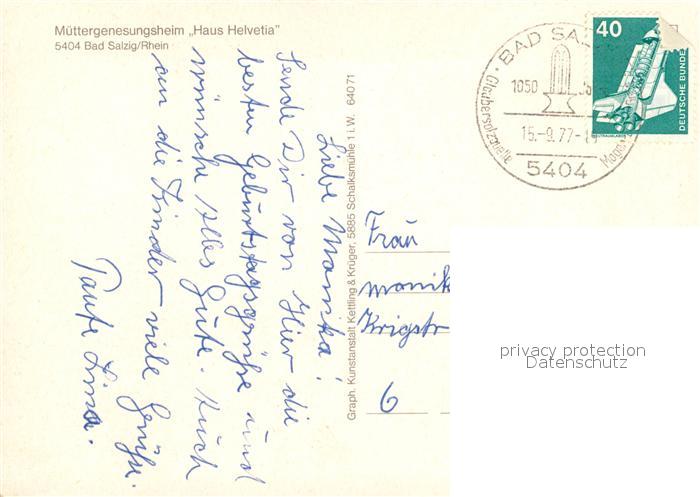 Müttergenesungsheim „Haus Helvetia"
5404 Bad Salzig/Rhein
Liebe Monika!
Sende Dir von Hier die
besten Geburtstagsgrüße und
wünsche Alles Gute. Auch
an die Kinder viele Grüße.
Tante Lina.
Graph. Kunstanstalt Kettling & Krüger, 5885 Schalksmühle 1 i. W. 64071
BAD SAL
1050
Glaubersalzquelle
15.-9.77-
5404
40
DEUTSCHE BUNDE
Frau
Monik
Krigstr
6
privacy protection
Datenschutz